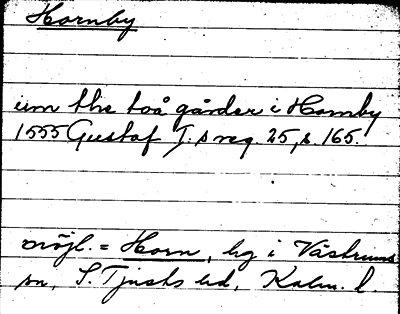 Hornby
um the toå gårder i Hornby
1555 Gustaf I:s reg. 25, s. 165.
möjl. = Horn, hg i Västrums
sn, S. Tjusts hd, Kalm. l.